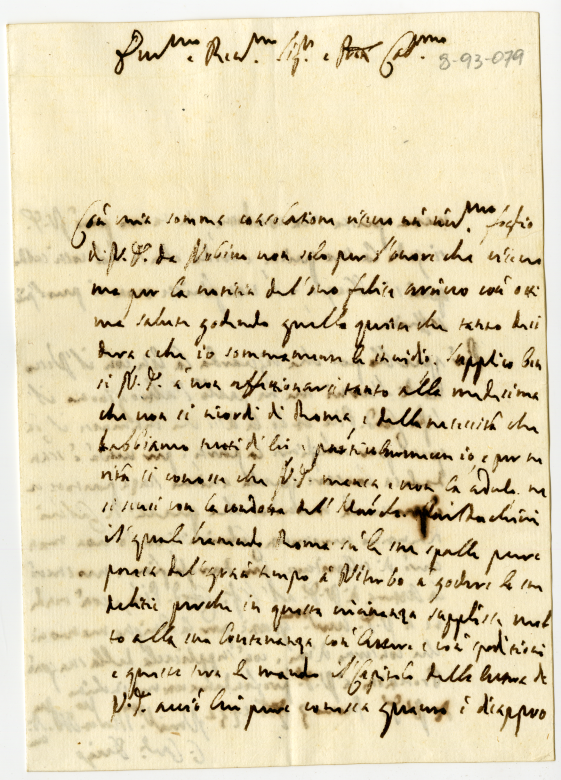 Em.mo e Rev.mo Sig.r e Pron Col.mo
8-93-079
Con mia somma consolatione ricevo un um.mo foglio
di V.E. da Nobine non solo per l'onore che ricevo
ma per la notitia del suo felice arrivo con otti
ma salute godendo quella quiete che tanto desi
dera e che io sommamente le invidio. Supplico ben
si V.E. à non affettionarsi tanto alla medesima
che non si ricordi di Roma, e della necessità che
habbiamo tutti di lei e particolarmente io, e per ve
rità si conosce che V.E. manca e non la adulo ne
si scusi con la condotta del
il quale havendo Roma sù le sue spalle pure
porta del gran tempo à Viterbo à godere le sue
delitie perche in questa vicinanza supplisce mol
to alla sua lontananza con lettere e con speditioni
e questa sera le mando il Capitolo della lettera di
V.E. acciò lui pure conosca quanto è disappro